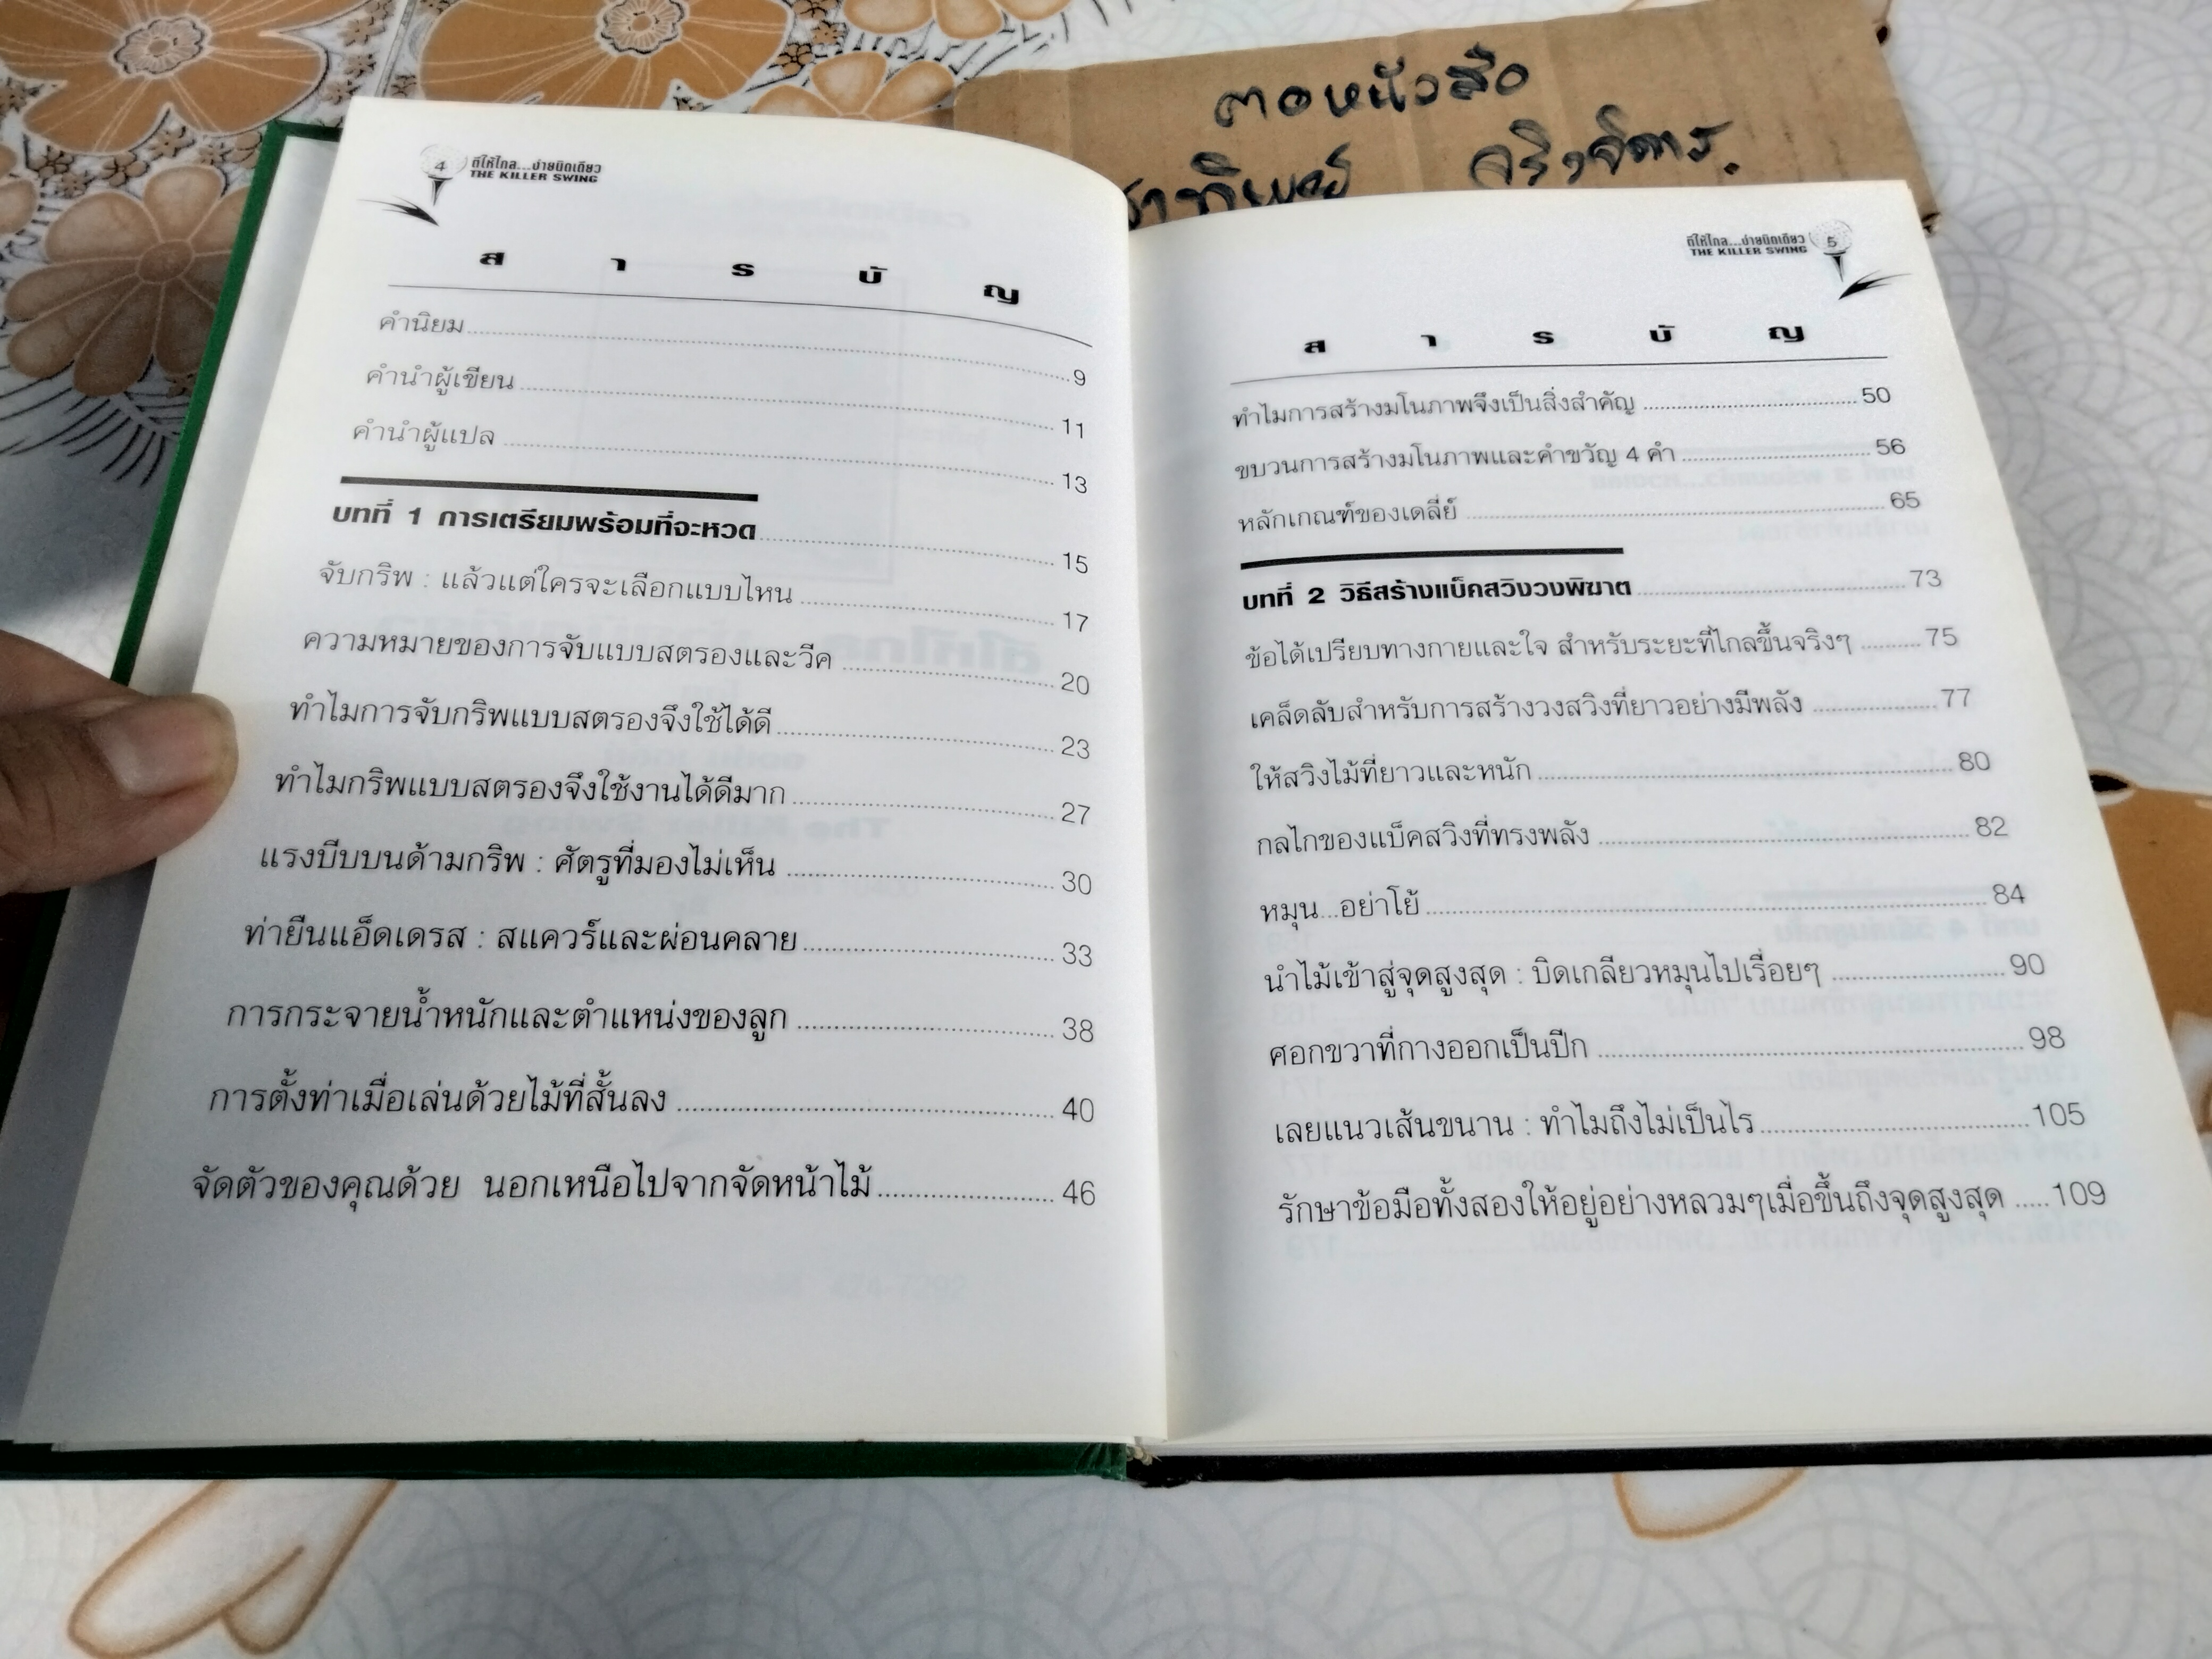 ตอหนังสือ
จริงจิตร.
4 ตีให้ไกล...ง่ายนิดเดียว
THE KILLER SWING
ส า ร บั ญ
คำนิยม 9
คำนำผู้เขียน 11
คำนำผู้แปล 13
บทที่ 1 การเตรียมพร้อมที่จะหวด 15
จับกริพ : แล้วแต่ใครจะเลือกแบบไหน 17
ความหมายของการจับแบบสตรองและวีค 20
ทำไมการจับกริพแบบสตรองจึงใช้ได้ดี 23
ทำไมกริพแบบสตรองจึงใช้งานได้ดีมาก 27
แรงบีบบนด้ามกริพ : ศัตรูที่มองไม่เห็น 30
ท่ายืนแอ็ดเดรส : สแควร์และผ่อนคลาย 33
การกระจายน้ำหนักและตำแหน่งของลูก 38
การตั้งท่าเมื่อเล่นด้วยไม้ที่สั้นลง 40
จัดตัวของคุณด้วย นอกเหนือไปจากจัดหน้าไม้ 46
ตีให้ไกล...ง่ายนิดเดียว 5
THE KILLER SWING
ส า ร บั ญ
ทำไมการสร้างมโนภาพจึงเป็นสิ่งสำคัญ 50
ขบวนการสร้างมโนภาพและคำขวัญ 4 คำ 56
หลักเกณฑ์ของเดลี่ย์ 65
บทที่ 2 วิธีสร้างแบ็คสวิงวงพิฆาต 73
ข้อได้เปรียบทางกายและใจ สำหรับระยะที่ไกลขึ้นจริงๆ 75
เคล็ดลับสำหรับการสร้างวงสวิงที่ยาวอย่างมีพลัง 77
ให้สวิงไม้ที่ยาวและหนัก 80
กลไกของแบ็คสวิงที่ทรงพลัง 82
หมุน...อย่าโย้ 84
นำไม้เข้าสู่จุดสูงสุด : บิดเกลียวหมุนไปเรื่อยๆ 90
ศอกขวาที่กางออกเป็นปีก 98
เลยแนวเส้นขนาน : ทำไมถึงไม่เป็นไร 105
รักษาข้อมือทั้งสองให้อยู่อย่างหลวมๆเมื่อขึ้นถึงจุดสูงสุด 109